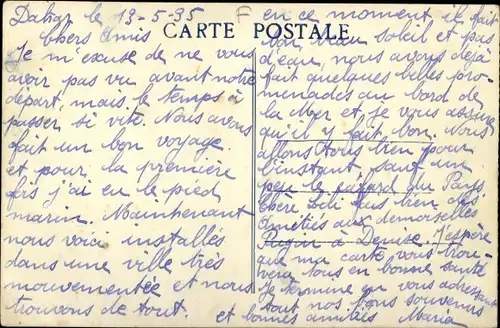 Dakar le 13-5-35
CARTE POSTALE
F
Chers Amis
Je m'excuse de ne vous
avoir pas vu avant notre
départ, mais le temps à
passer si vite. Nous avons
fait un bon voyage.
et pour la première
fois j'ai eu le pied
marin. Maintenant
nous voici installés
dans une ville très
mouvementée et nous
trouvons de tout.
en ce moment il fait
bon, beau soleil et pas
d'eau, nous avons déjà
fait quelques belles pro-
menades au bord de
la Mer et je vous assure
qu'il y fait bon. Nous
allons tous bien pour
l'instant sauf un
peu le cafard du Pays
Chère Lili bien des
Amitiés aux demoiselles
à Denise. J'espère
que ma carte vous trou-
vera tous en bonne santé
Je termine en vous adressant
tout nos bons souvenirs
et bonnes amitiés Maria